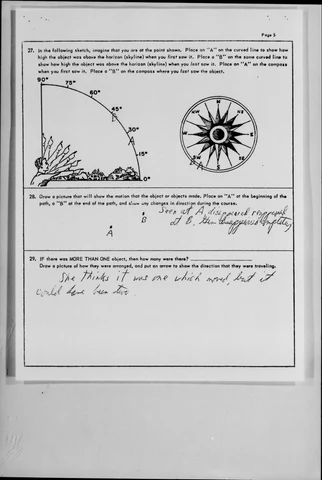 Page 5
27. In the following sketch, imagine that you are at the point shown. Place an "A" on the curved line to show how
high the object was above the horizon (skyline) when you first saw it. Place a "B" on the same curved line to
show how high the object was above the horizon (skyline) when you last saw it. Place an "A" on the compass
when you first saw it. Place a "B" on the compass where you last saw the object.
90°
75°
60°
45°
B
30°
A
15°
0°
N
NE
E
SE
S
SW
W
NW
A
28. Draw a picture that will show the motion that the object or objects made. Place an "A" at the beginning of the
path, a "B" at the end of the path, and show any changes in direction during the course.
Seen at A, disappeared reappeared
at B, then disappeared completely
B
A
29. IF there was MORE THAN ONE object, then how many were there?
Draw a picture of how they were arranged, and put an arrow to show the direction that they were traveling.
She thinks it was one which moved, but it
could have been two.